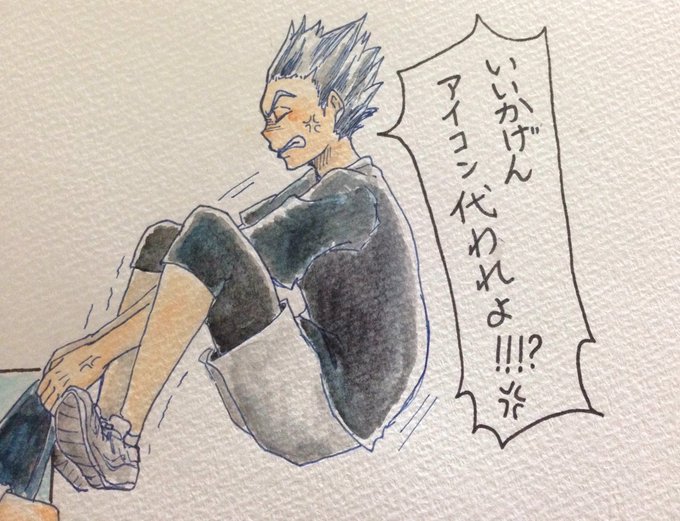 いいかげん
アイコン代われよ!!!?